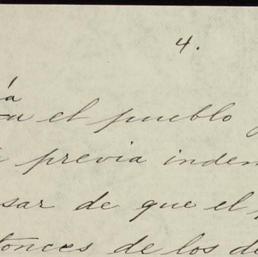 4.
el pueblo
previa inden
sar de que el
tonces de los de